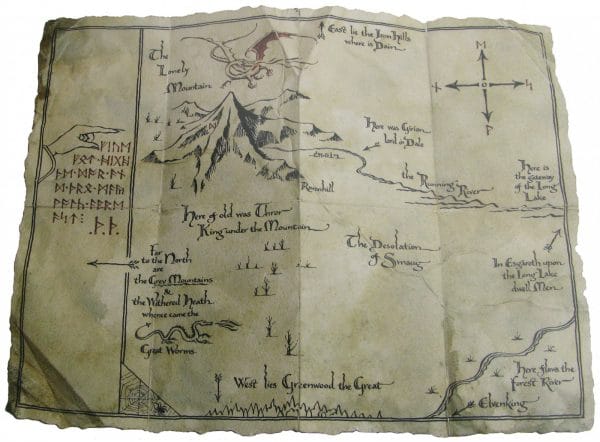 East lie the Iron Hills
where is Dain.
The
Lonely
Mountain
Here was Girion
lord in Dale
the Running River
Here is
the gateway
of the Long
Lake
Ravenhill
Here of old was Thror
King under the Mountain
The Desolation
of Smaug
Far
to the North
are
the Grey Mountains
&
the Withered Heath
whence came the
Great Worms.
In Esgaroth upon
the Long Lake
dwell Men
Here flows the
Forest River
West lies Greenwood the Great
Elvenking